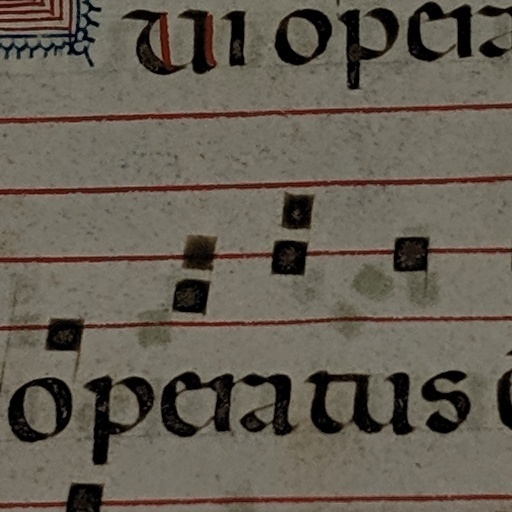 ui opera
operatus